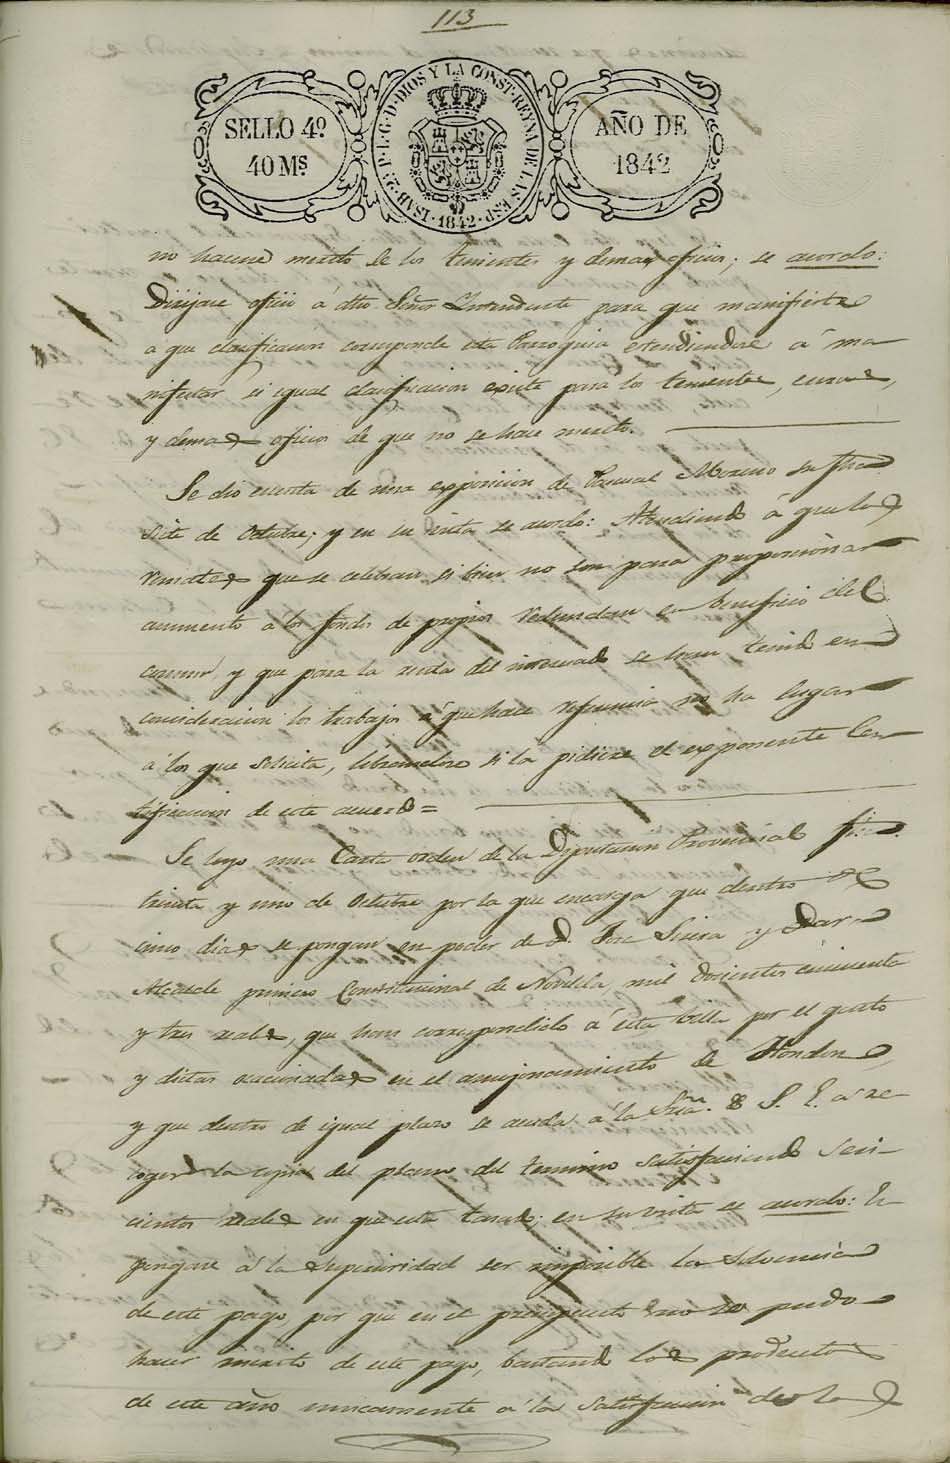 113
SELLO 4º
40 Ms.
ISAB. 2ª P. L. G. D. DIOS Y LA CONST. REYNA DE LAS ESP.
1842
AÑO DE
1842
no hacerse merito de los tenientes y demas oficios; se acordo:
Dirijase oficio á dho Señor Intendente para que manifieste
a que clasificacion corresponde esta Parroquia estendiendose á ma-
nifestar si igual clasificacion existe para los tenientes, curas,
y demas oficios de que no se hace merito.
Se dio cuenta de una exposicion de Pascual Moreno su fha
siete de Octubre; y en su vista se acordo: Atendiendo á que los
remates que se celebran si bien no son para proporcionar
aumento a los fondos de propios redundan en beneficio del
comun, y que para la renta del interesado se han tenido en
consideracion los trabajos á que hace referencia no ha lugar
á los que solicita, librandose si la pidiere el exponente Cer-
tificacion de este acuerdo =
Se leyo una Carta orden de la Diputacion Provincial fha
treinta y uno de Octubre por la que encarga que dentro de
cinco dias se pongan en poder de D. Jose Sirera y Dara
Alcalde primero Constitucional de Novelda mil docientos cincuenta
y tres reales, que han correspondido á esta Villa por el gasto
y dietas ocacionadas en el amojonamiento de Hondon,
y que dentro de igual plazo se acuda á la Sria. de S. E. á re-
coger la copia del plano del termino satisfaciendo seis-
cientos reales en que esta tasado; en su vista se acordo: Es-
pongase á la superioridad ser imposible la solvencia
de este pago, por que en el presupuesto no se pudo
hacer merito de este pago, bastando los productos
de este año unicamente á la satisfaccion de la